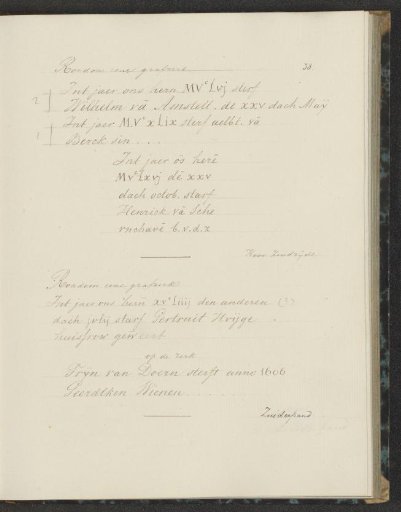 Rondom eene grafzerk 38.
Int jaer ons hern MVᶜLvj sterf
2 Wilhelm vā Amstell. de xxv dach Maÿ
Int jaer MVᶜxLix sterf aelbt. vā
1 Berck sin . . .
Int jaer ōs herē
MVᶜLxvj de xxv
dach octob. starf
Henrick vā Sche
vnchavē b.v.d.z
Noor Zuidzijde
Rondom eene grafzerk
Int jaer ons hern xvᶜLiiij den anderen (?)
dach julij starf Gertruit Hvijge .
huisfrow gew eest
op de zerk
Trÿn van Doorn sterft anno 1606
Geerdtken Wienen . . . . .
Zuiderpand